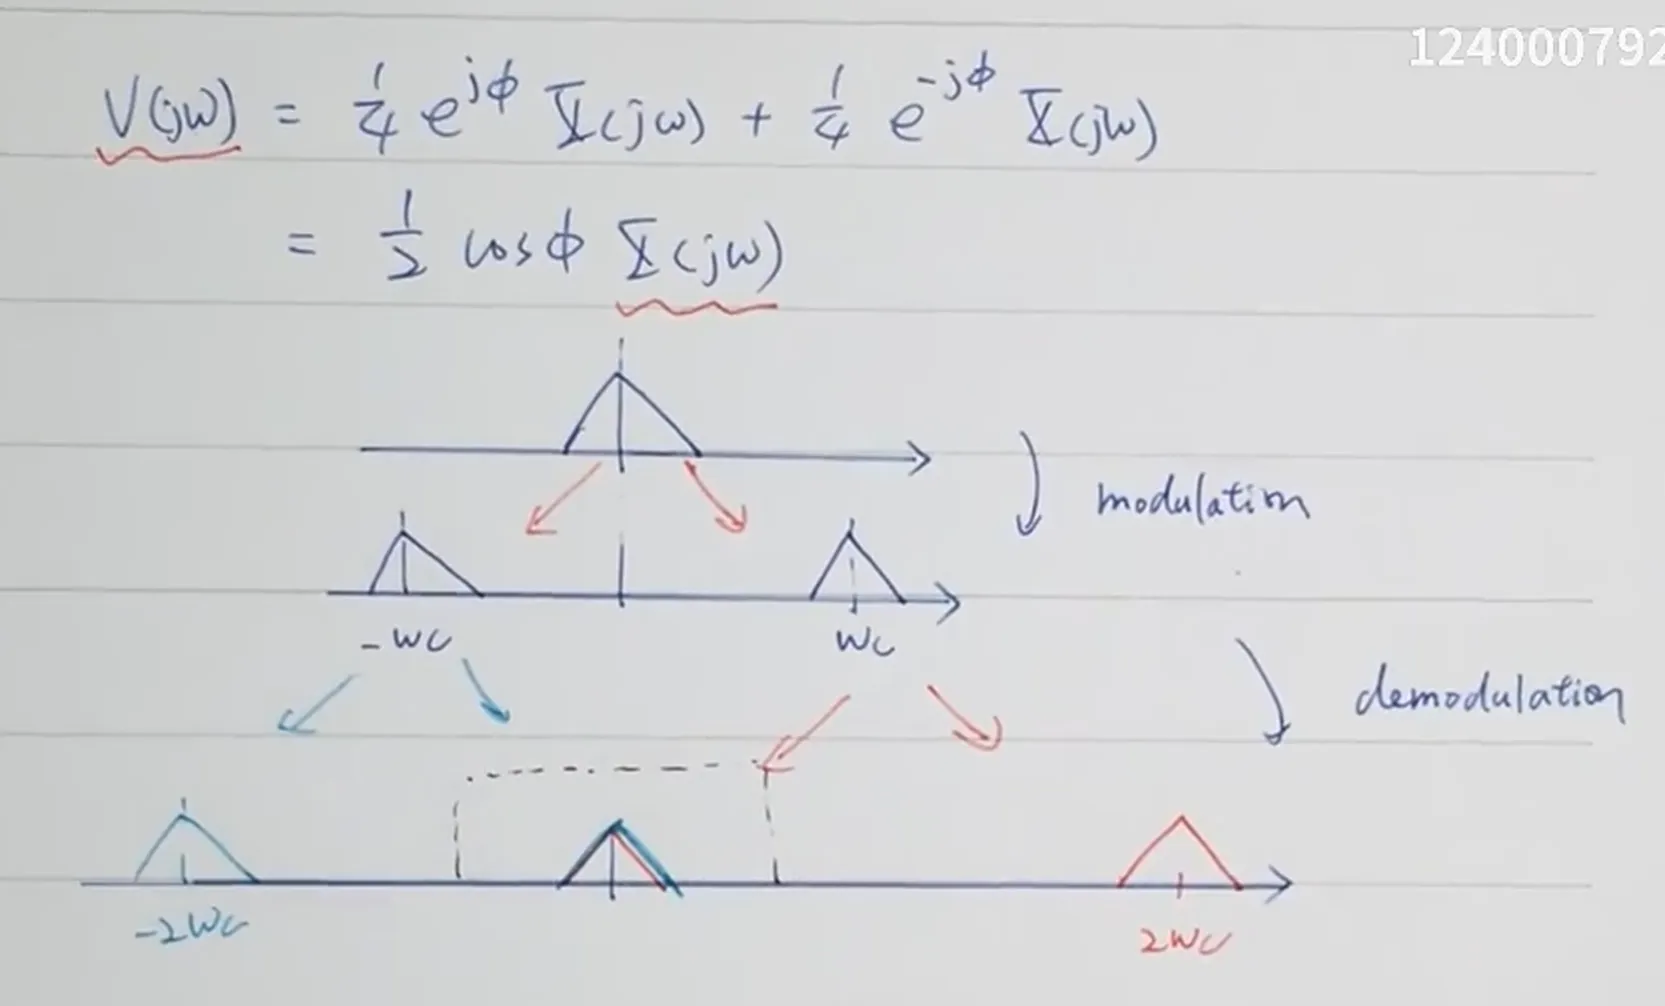 124000792
V(jω) = 1/4 e^{jϕ} X(jω) + 1/4 e^{-jϕ} X(jω)
= 1/2 cosϕ X(jω)
modulation
-ωc ωc
demodulation
-2ωc 2ωc